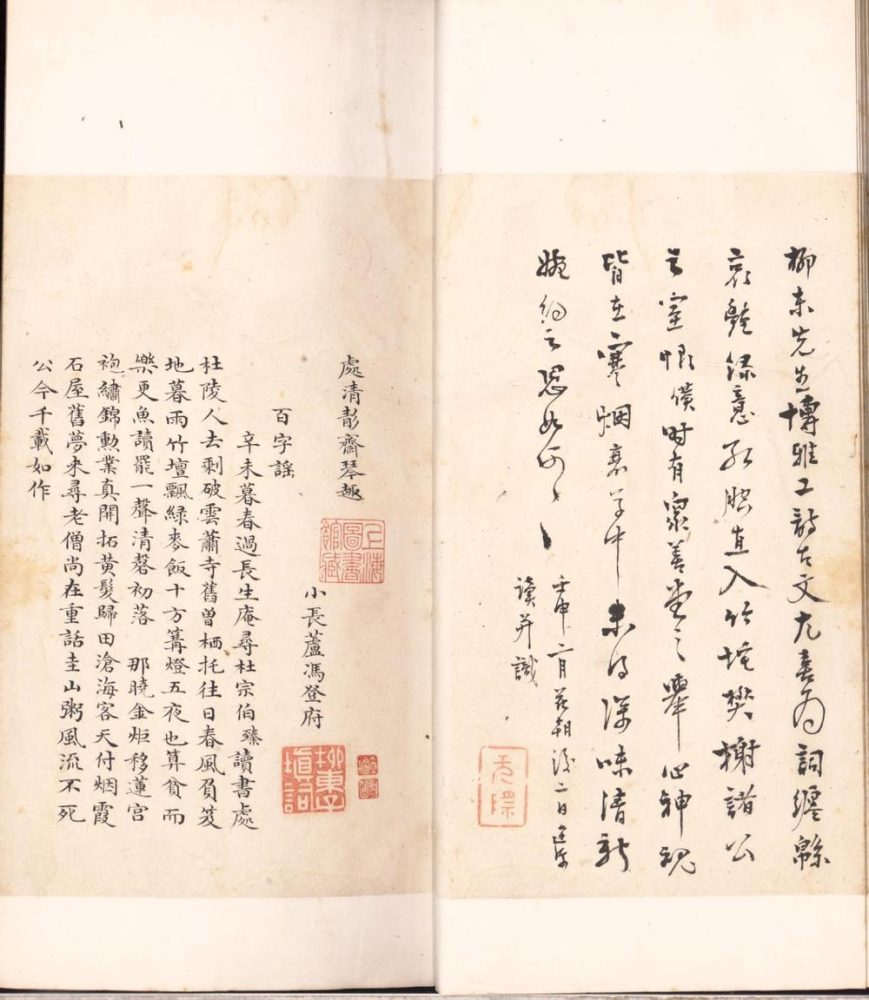 柳東先生博雅工詩古文尤喜為詞纏緜
哀豔綠意紅腔直入竹垞樊榭諸公
之室恨僕时有眾善堂之舉心神魂
皆在寒烟衰草中未得深味清新
婉約之思如何々々
壬申二月花朝後二日
讀并識
處清彭齋琴趣
上海圖書館藏
小長蘆馮登府
百字謠
辛未暮春過長生庵尋杜宗伯臻讀書處
杜陵人去剩破雲蕭寺舊曾栖托往日春風負笈
地暮雨竹壇飄綠麥飯十方篝燈五夜也算貧而
樂更魚讀罷一聲清磬初落　那曉金炬移蓮宮
袍繡錦勳業真開拓黄髮歸田滄海客天付烟霞
石屋舊夢來尋老僧尚在重話圭山粥風流不死
公今千載如作